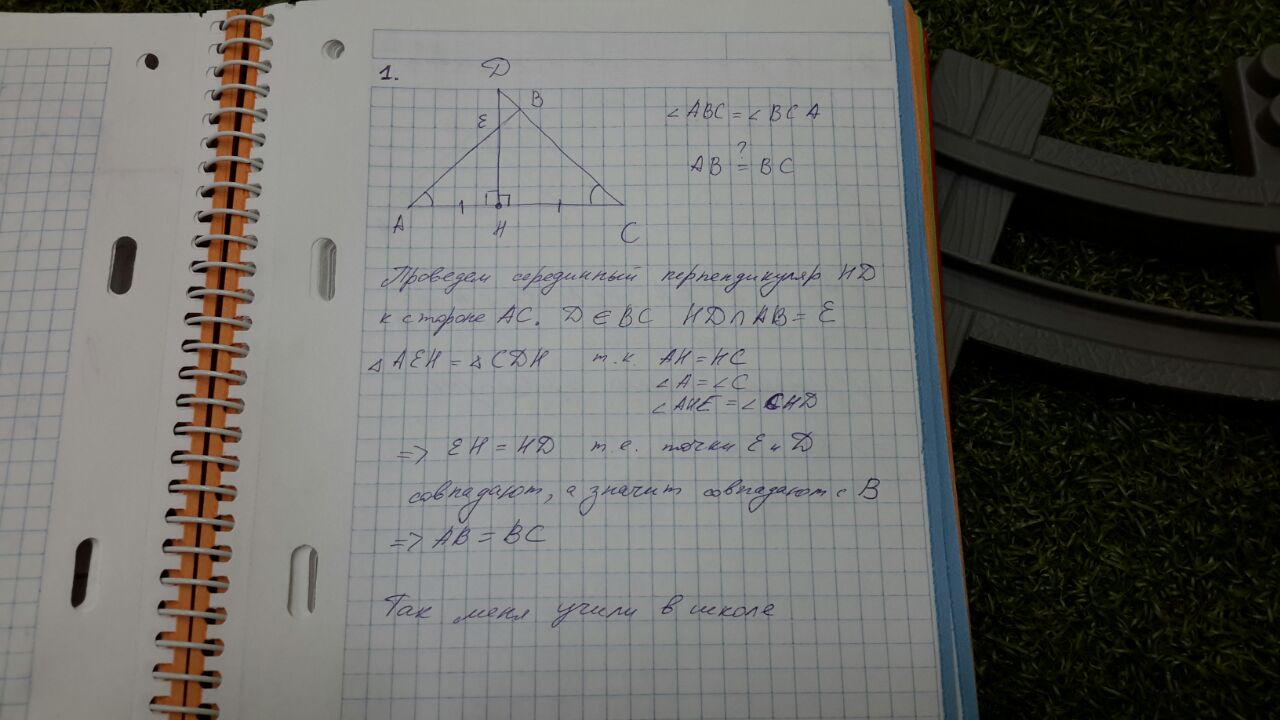 1.
D
B
E
A
H
C
∠ABC = ∠BCA
AB ≟ BC
Проведем серединный перпендикуляр HD
к стороне AC. D ∈ BC HD ∩ AB = E
△AEH = △CDH т.к. AH = HC
∠A = ∠C
∠AHE = ∠CHD
=> EH = HD т.е. точки E и D
совпадают, а значит совпадают с B
=> AB = BC
Так меня учили в школе